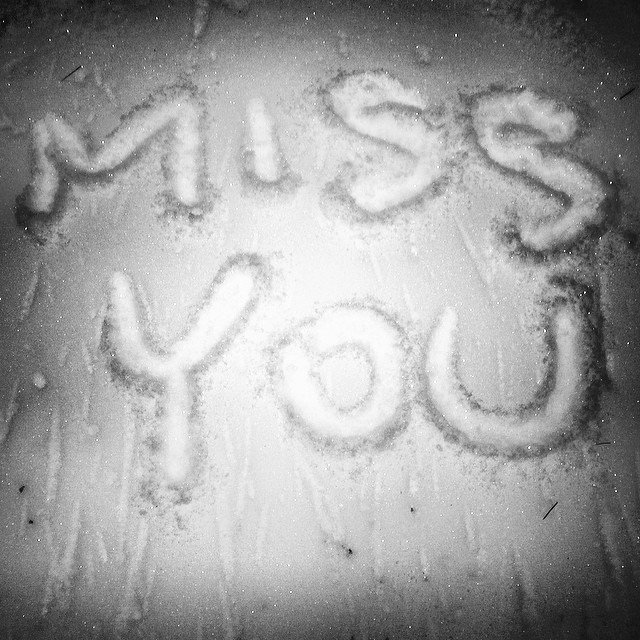 MISS
YOU